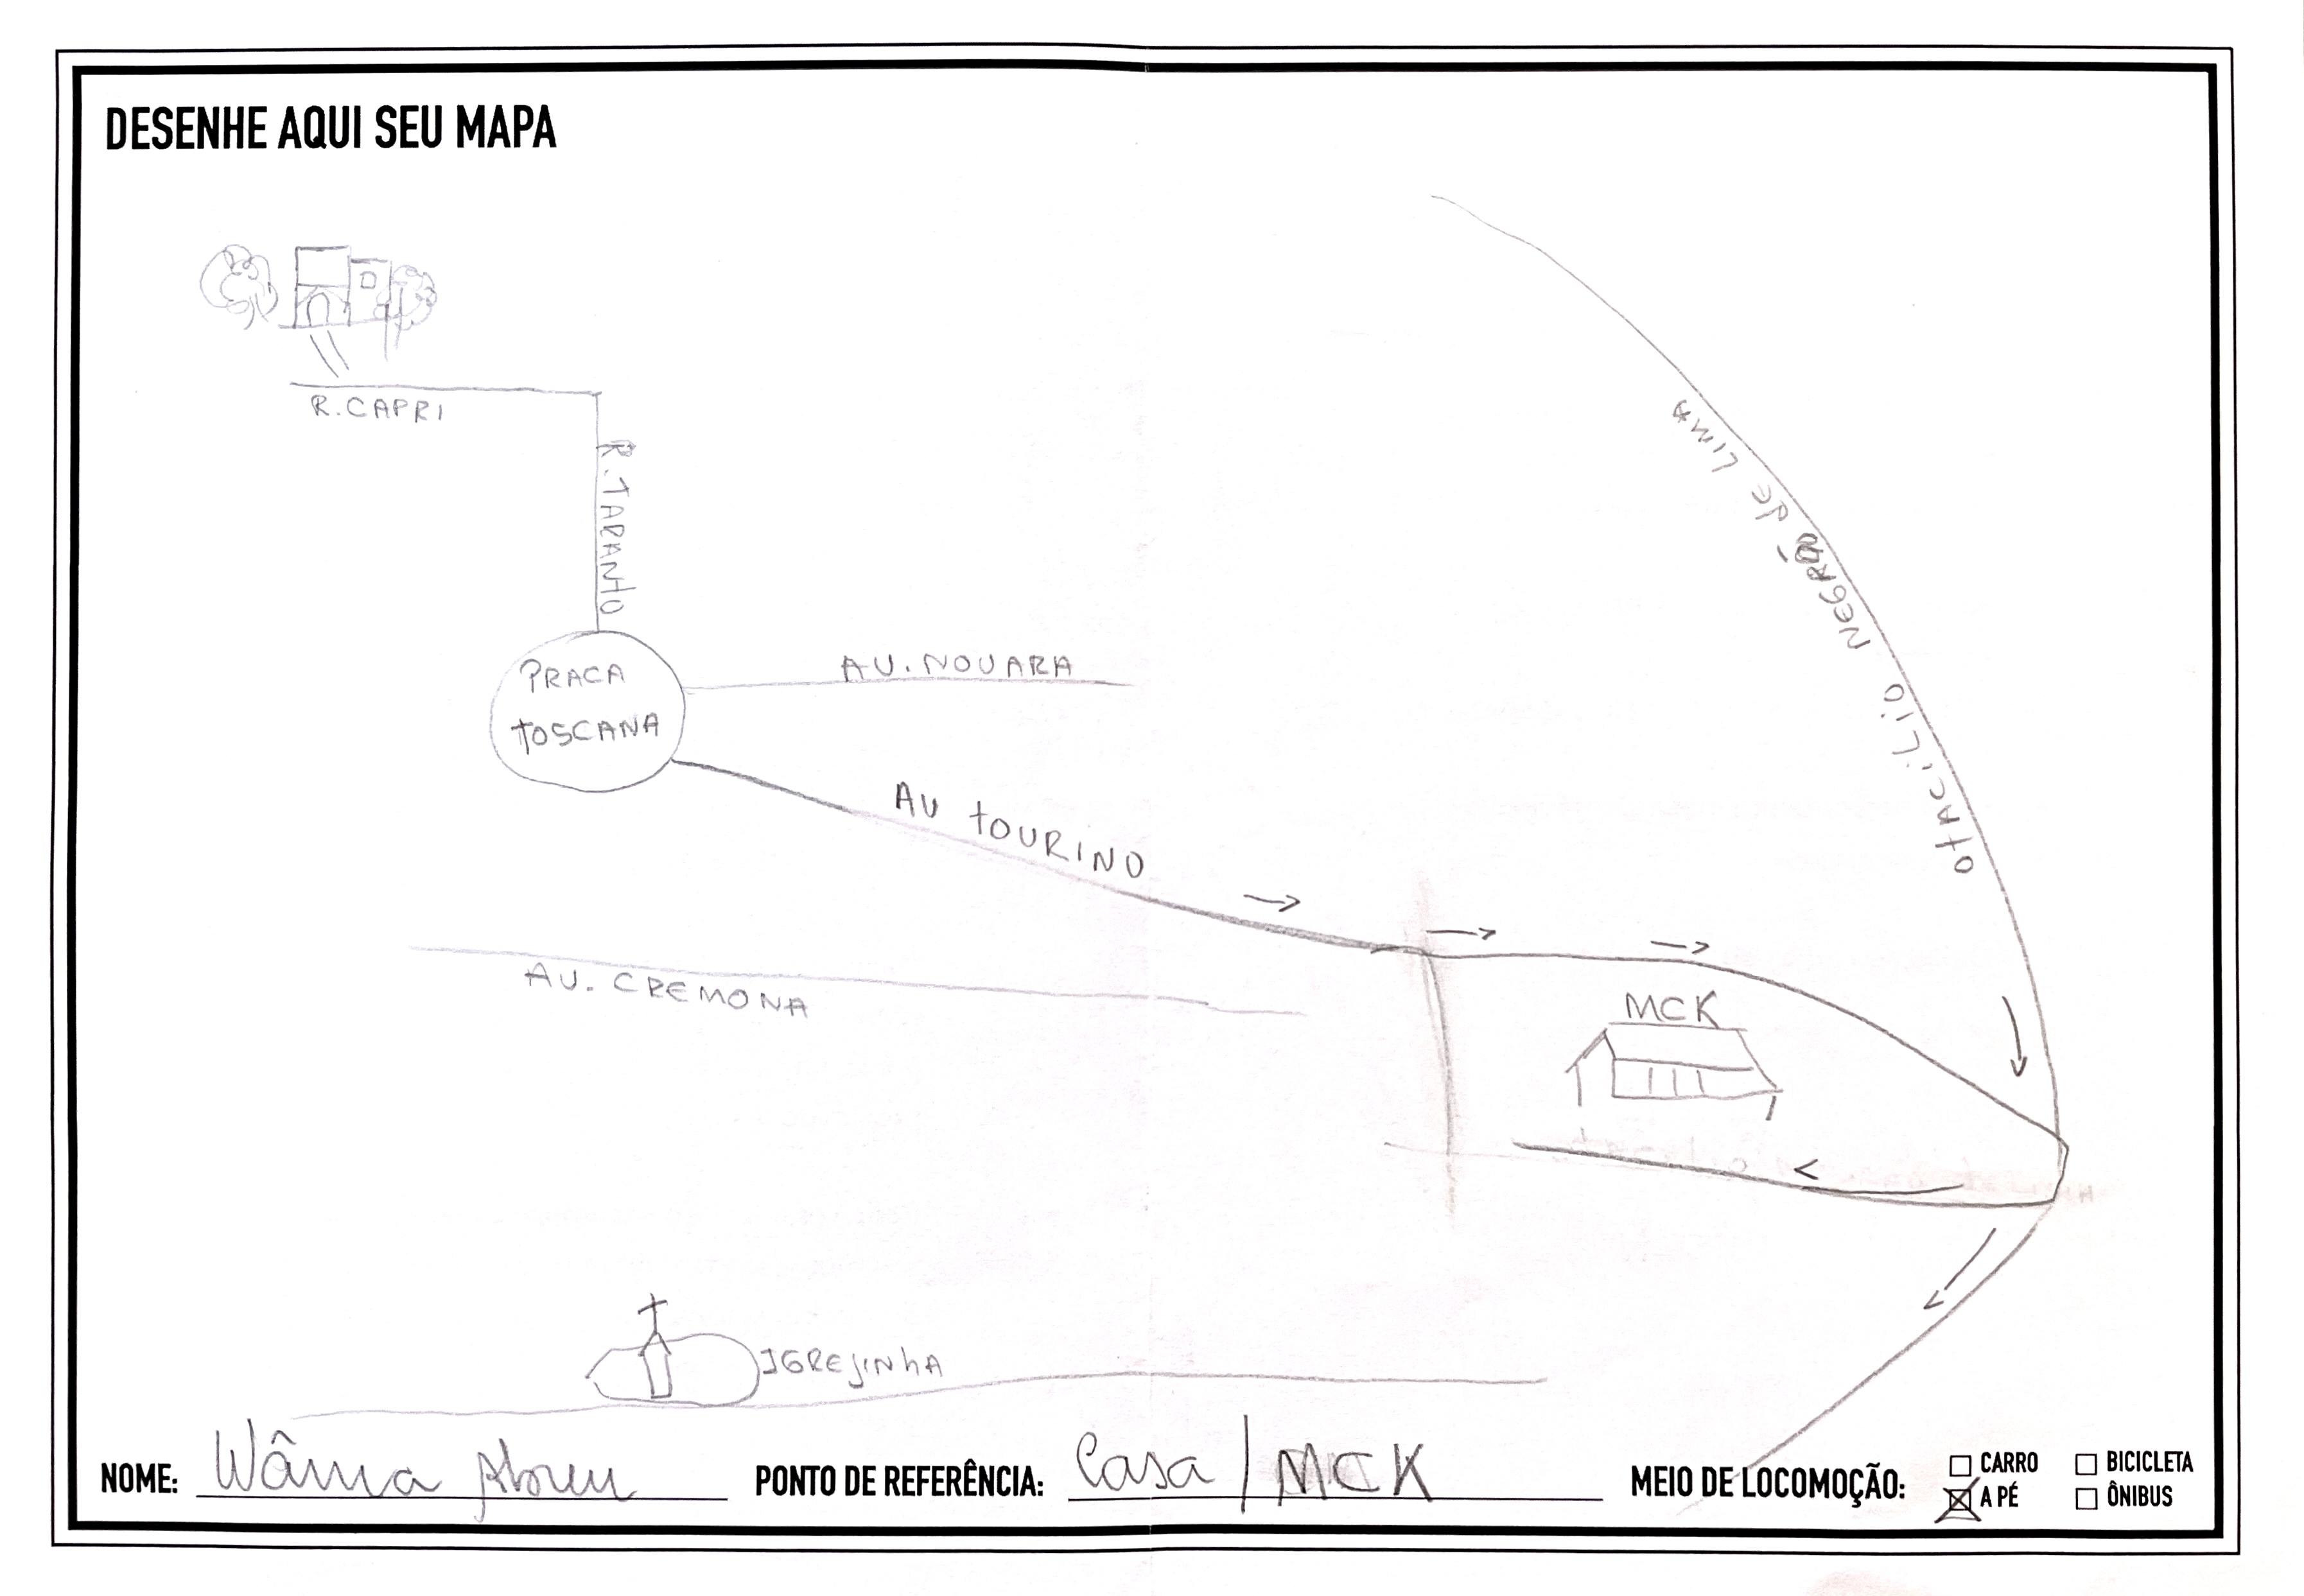 DESENHE AQUI SEU MAPA
R. CAPRI
R. TARANTO
PRACA
TOSCANA
AU. NOUARA
AU TOURINO
AU. CREMONA
OTACILIO NEGRÃO de LIMA
MCK
IGREJINHA
NOME: Wânia Abreu
PONTO DE REFERÊNCIA: Casa / MCK
MEIO DE LOCOMOÇÃO:
CARRO
BICICLETA
A PÉ
ÔNIBUS